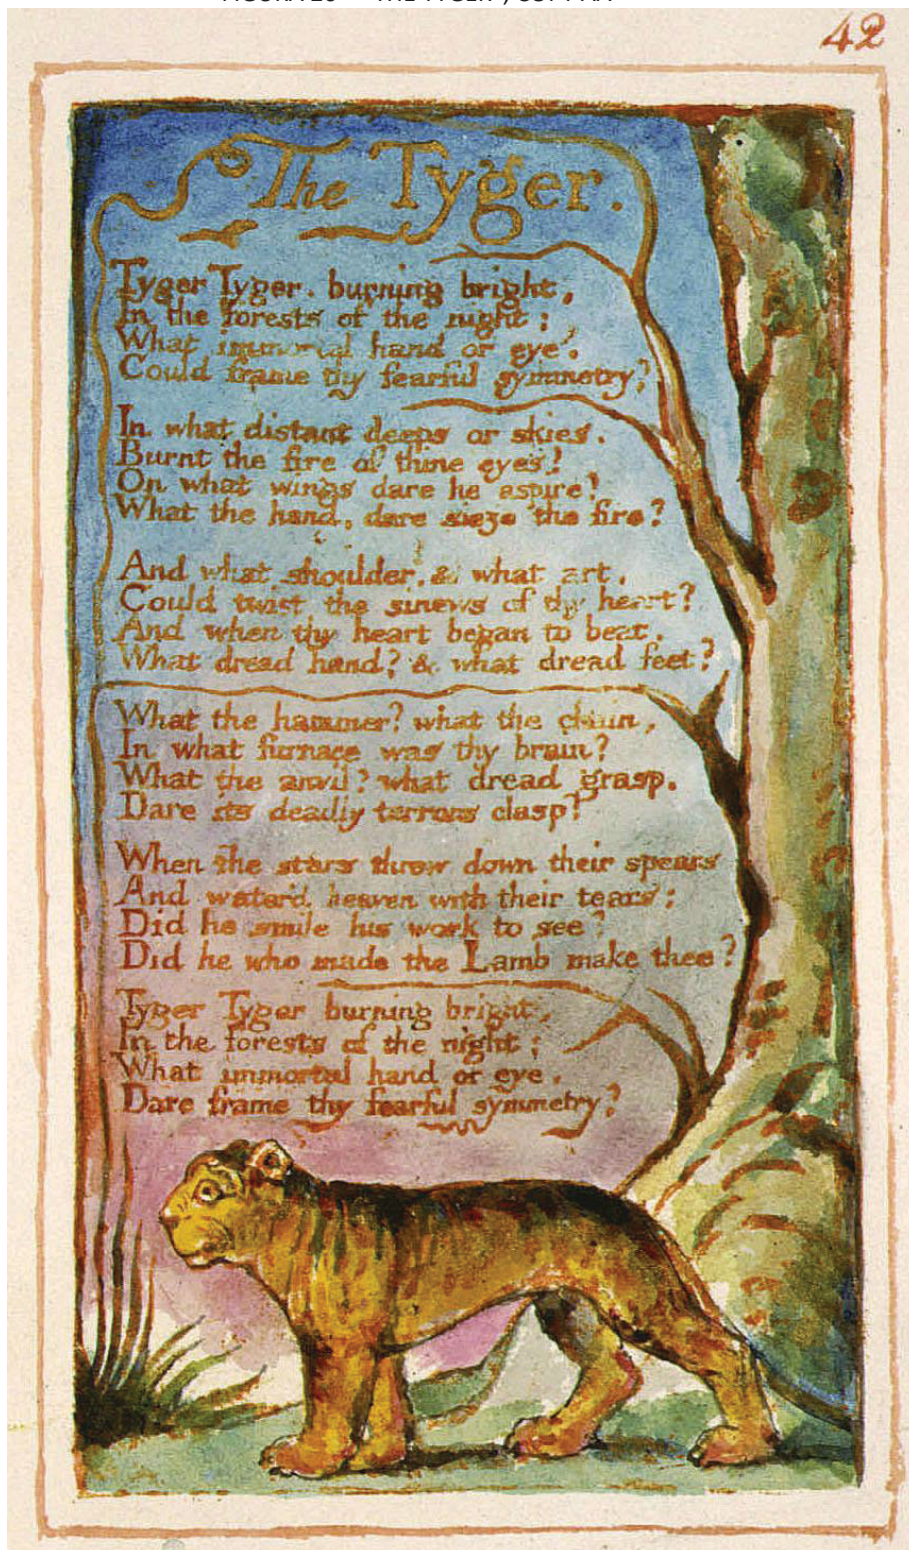 THE TYGER
42
The Tyger.
Tyger Tyger. burning bright,
In the forests of the night;
What immortal hand or eye.
Could frame thy fearful symmetry?
In what distant deeps or skies.
Burnt the fire of thine eyes!
On what wings dare he aspire!
What the hand, dare sieze the fire?
And what shoulder, & what art,
Could twist the sinews of thy heart?
And when thy heart began to beat,
What dread hand? & what dread feet?
What the hammer? what the chain,
In what furnace was thy brain?
What the anvil? what dread grasp.
Dare its deadly terrors clasp!
When the stars threw down their spears
And water'd heaven with their tears;
Did he smile his work to see?
Did he who made the Lamb make thee?
Tyger Tyger burning bright,
In the forests of the night;
What immortal hand or eye,
Dare frame thy fearful symmetry?